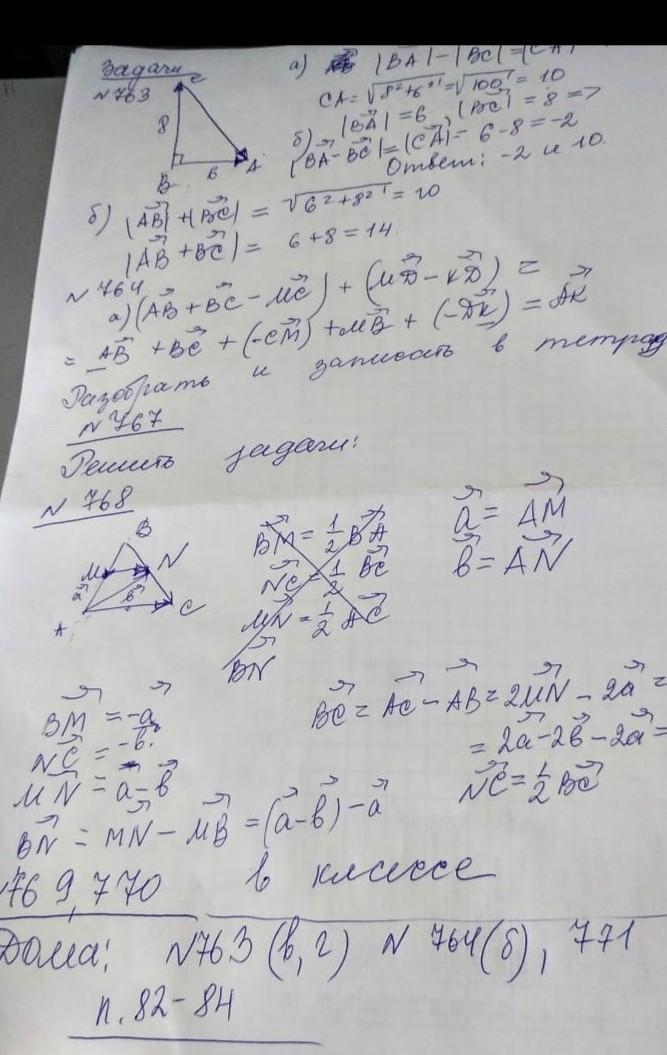 Задачи
N 763
C
8
B
6
A
а) |BA| - |BC| = |CA|
CA = √8²+6² = √100 = 10
|BA| = 6, |BC| = 8 =>
б) |BA - BC| = |CA| = 6-8 = -2
Ответ: -2 и 10.
б) |AB| + |BC| = √6²+8² = 10
|AB + BC| = 6+8 = 14.
N 764
а) (AB + BC - MC) + (MD - KD) =
= AB + BC + (-CM) + MB + (-DK) = AK
Разобрать и записать в тетрад
N 767
Решить задачи:
N 768
B
M
N
a
b
A
C
BM = 1/2 BA
NC = 1/2 BC
MN = 1/2 AC
BN
a = AM
b = AN
BM = -a
NC = -b.
MN = a - b
BN = MN - MB = (a - b) - a
BC = AC - AB = 2MN - 2a =
= 2a - 2b - 2a =
NC = 1/2 BC
769, 770 в классе
Дома: N763 (в, г) N 764(б), 771
п. 82-84